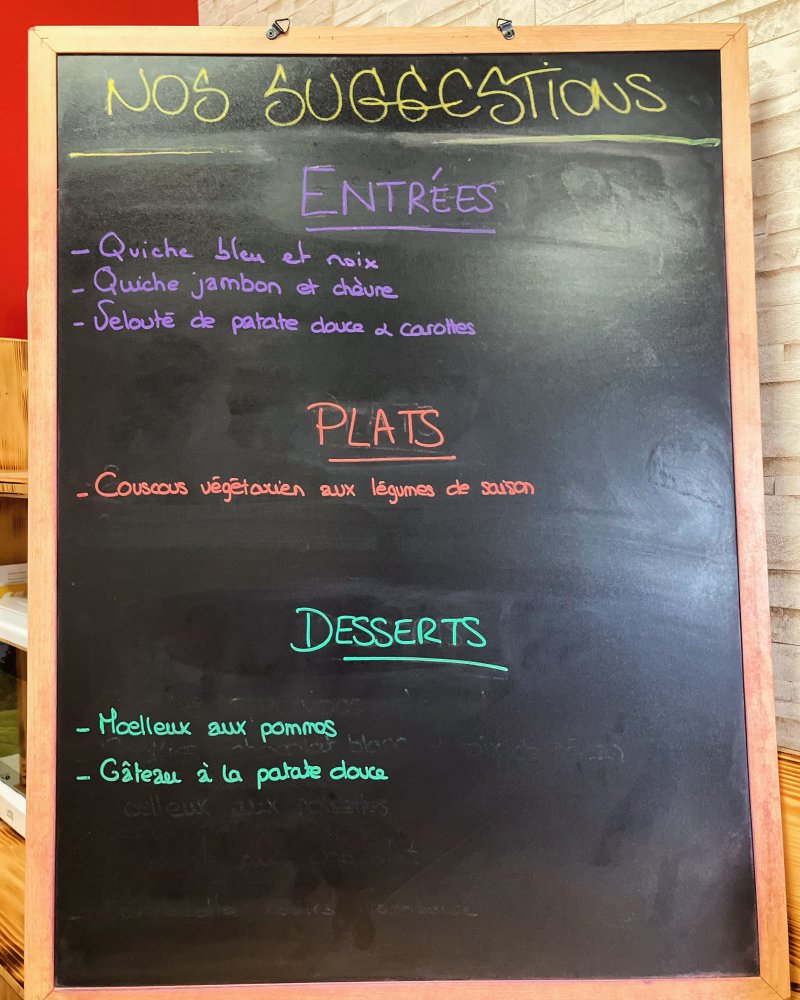 NOS SUGGESTIONS
ENTRÉES
- Quiche bleu et noix
- Quiche jambon et chèvre
- Velouté de patate douce & carottes
PLATS
- Couscous végétarien aux légumes de saison
DESSERTS
- Moelleux aux pommes
- Gâteau à la patate douce